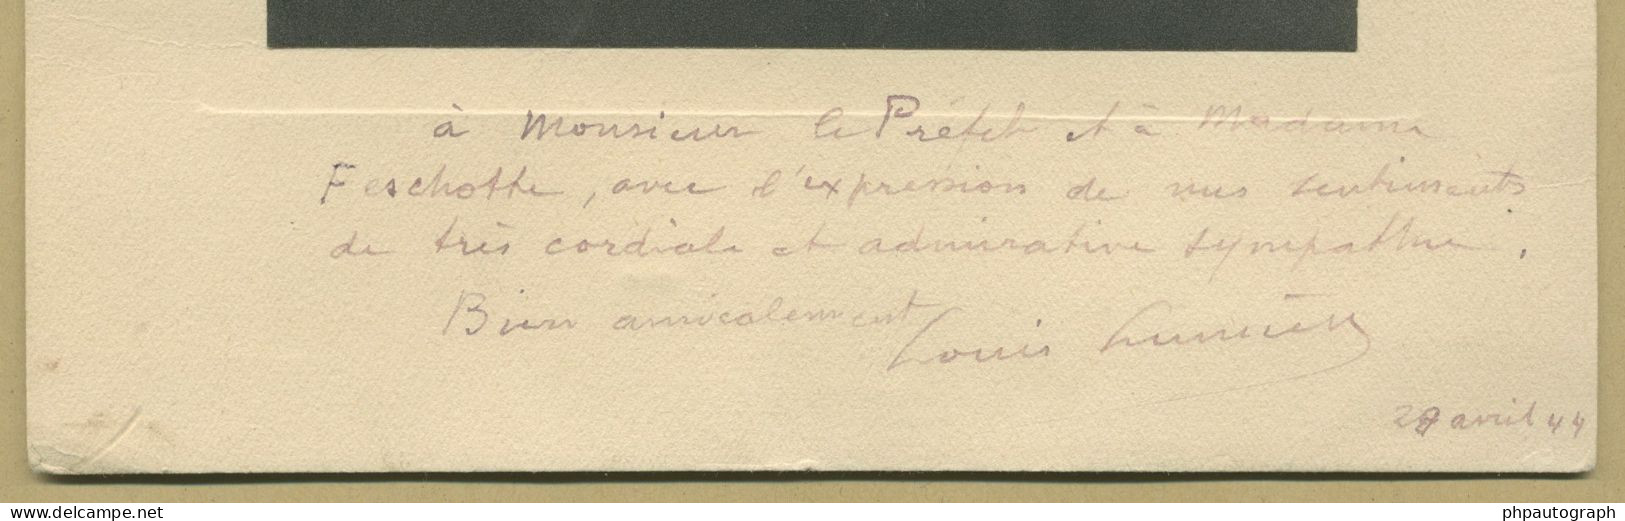 à Monsieur le Préfet et à Madame
Feschotte, avec l'expression de nos sentiments
de très cordiale et admirative sympathie.
Bien amicalement
Louis Lumière
avril 44
www.delcampe.net
phpautograph